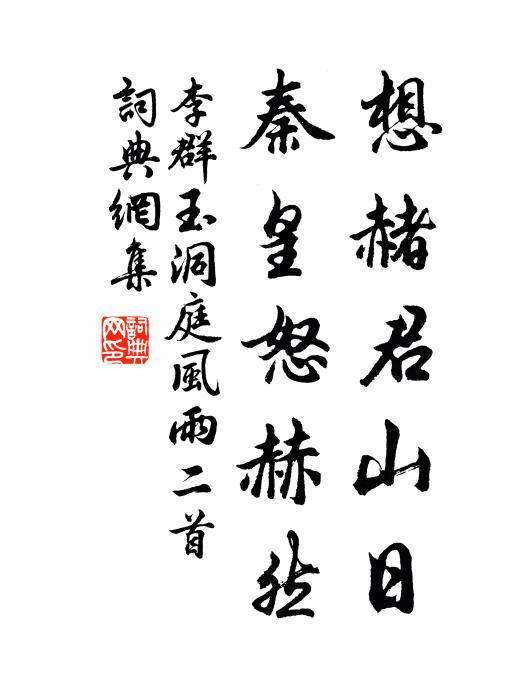 想赭君山日
秦皇怒赫然
李群玉洞庭風雨二首
詞典網集
詞典網印